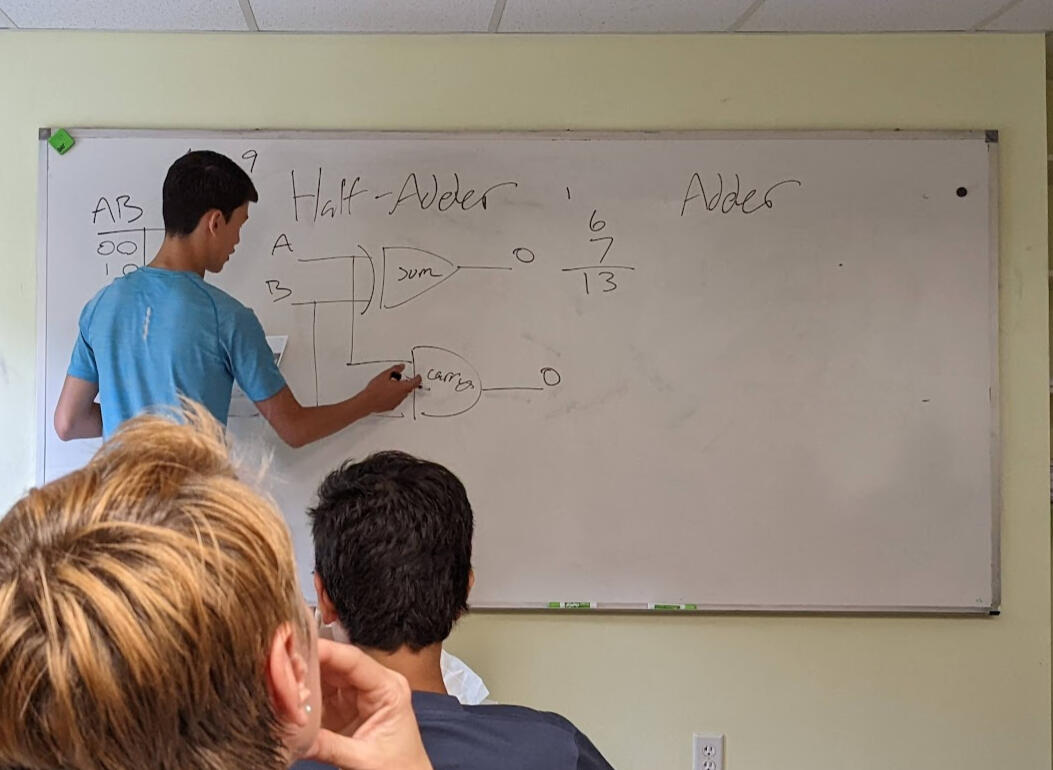 9
Half-Adder
Adder
AB
00
10
A
B
sum
0
1
6
7
13
carry
0